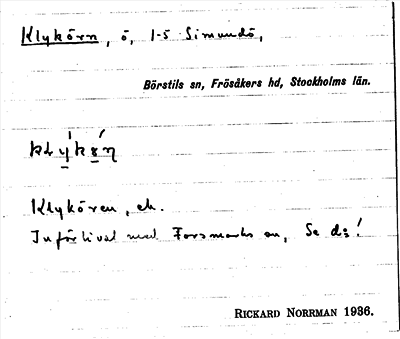 Klykörn, ö, 1-5 Simundö,
Börstils sn, Frösåkers hd, Stockholms län.
Klykören, ek.
Införlivat med Forsmarks sn, Se d:o!
RICKARD NORRMAN 1936.